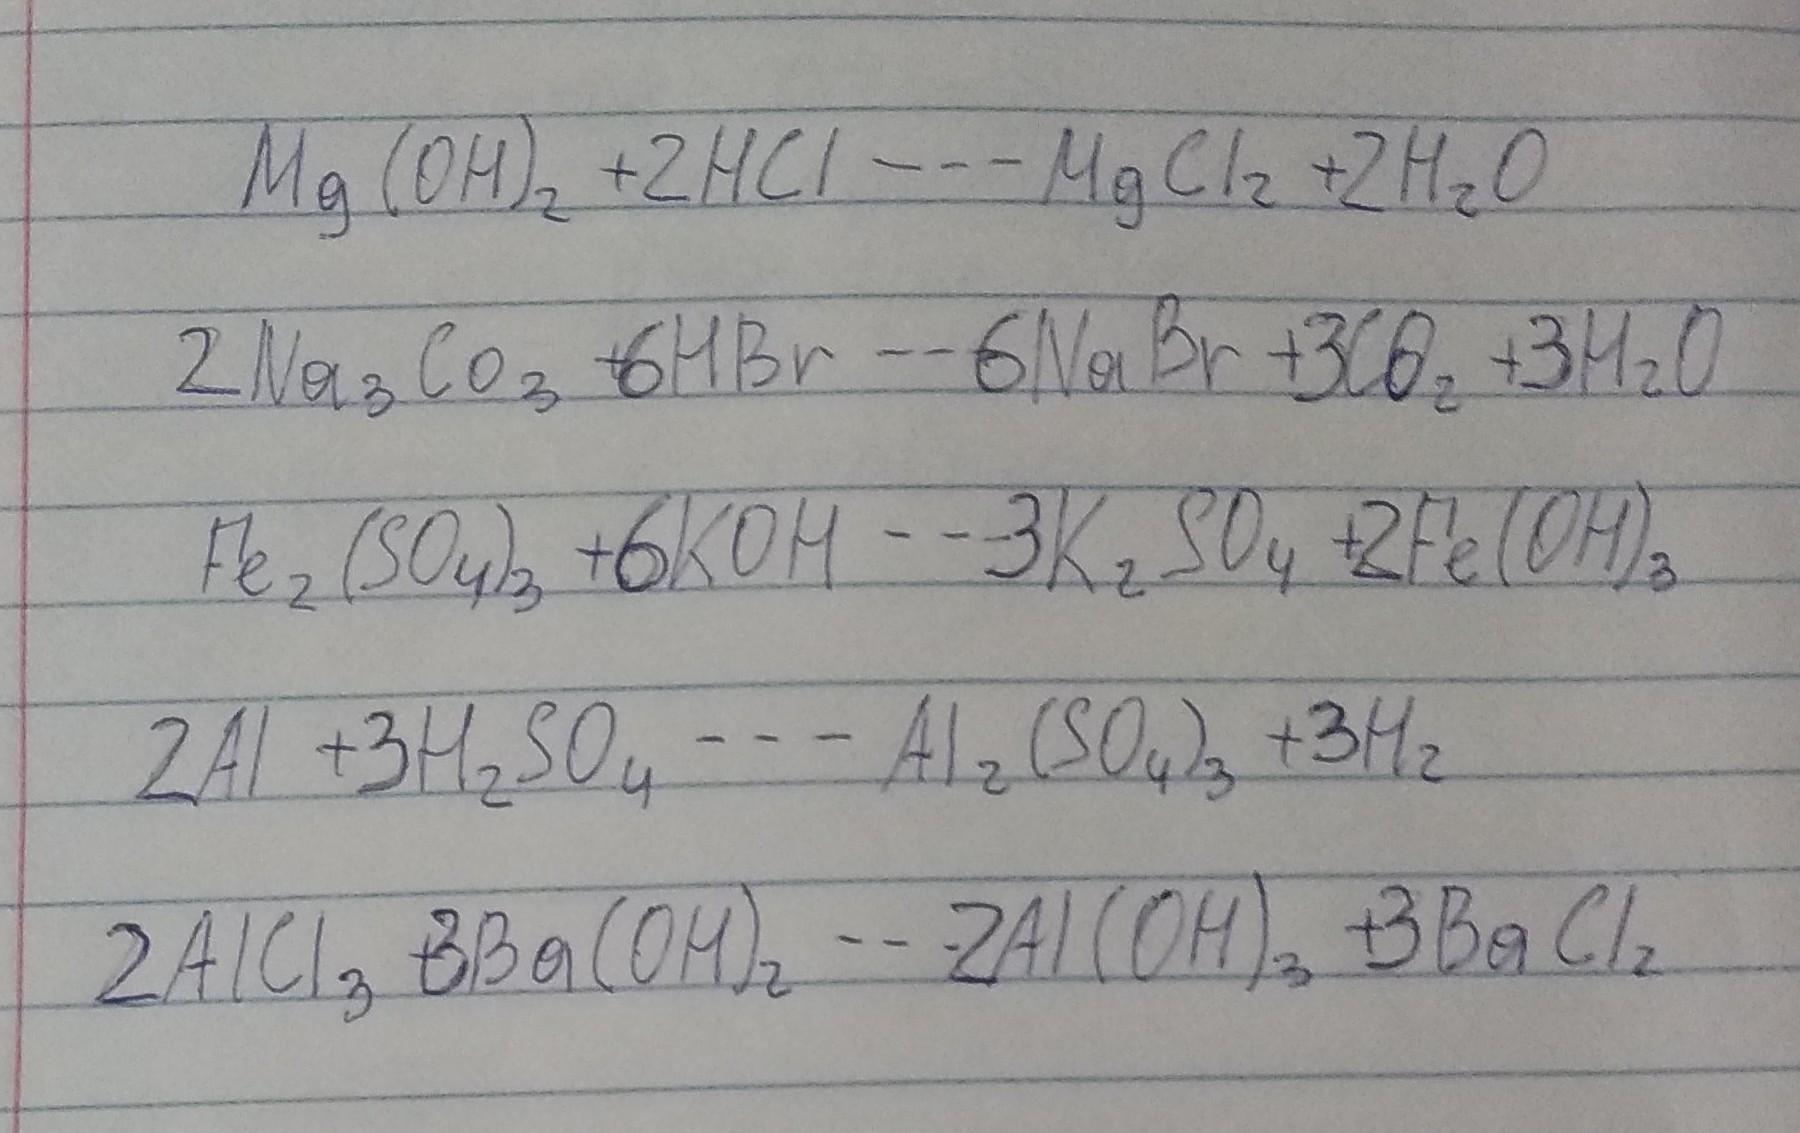 Mg(OH)₂ +2HCl ---- MgCl₂ +2H₂O
2Na₃Co₃ +6HBr --- 6NaBr +3CO₂ +3H₂O
Fe₂(SO₄)₃ +6KOH --- 3K₂SO₄ +2Fe(OH)₃
2Al +3H₂SO₄ --- Al₂(SO₄)₃ +3H₂
2AlCl₃ +3Ba(OH)₂ --- 2Al(OH)₃ +3BaCl₂